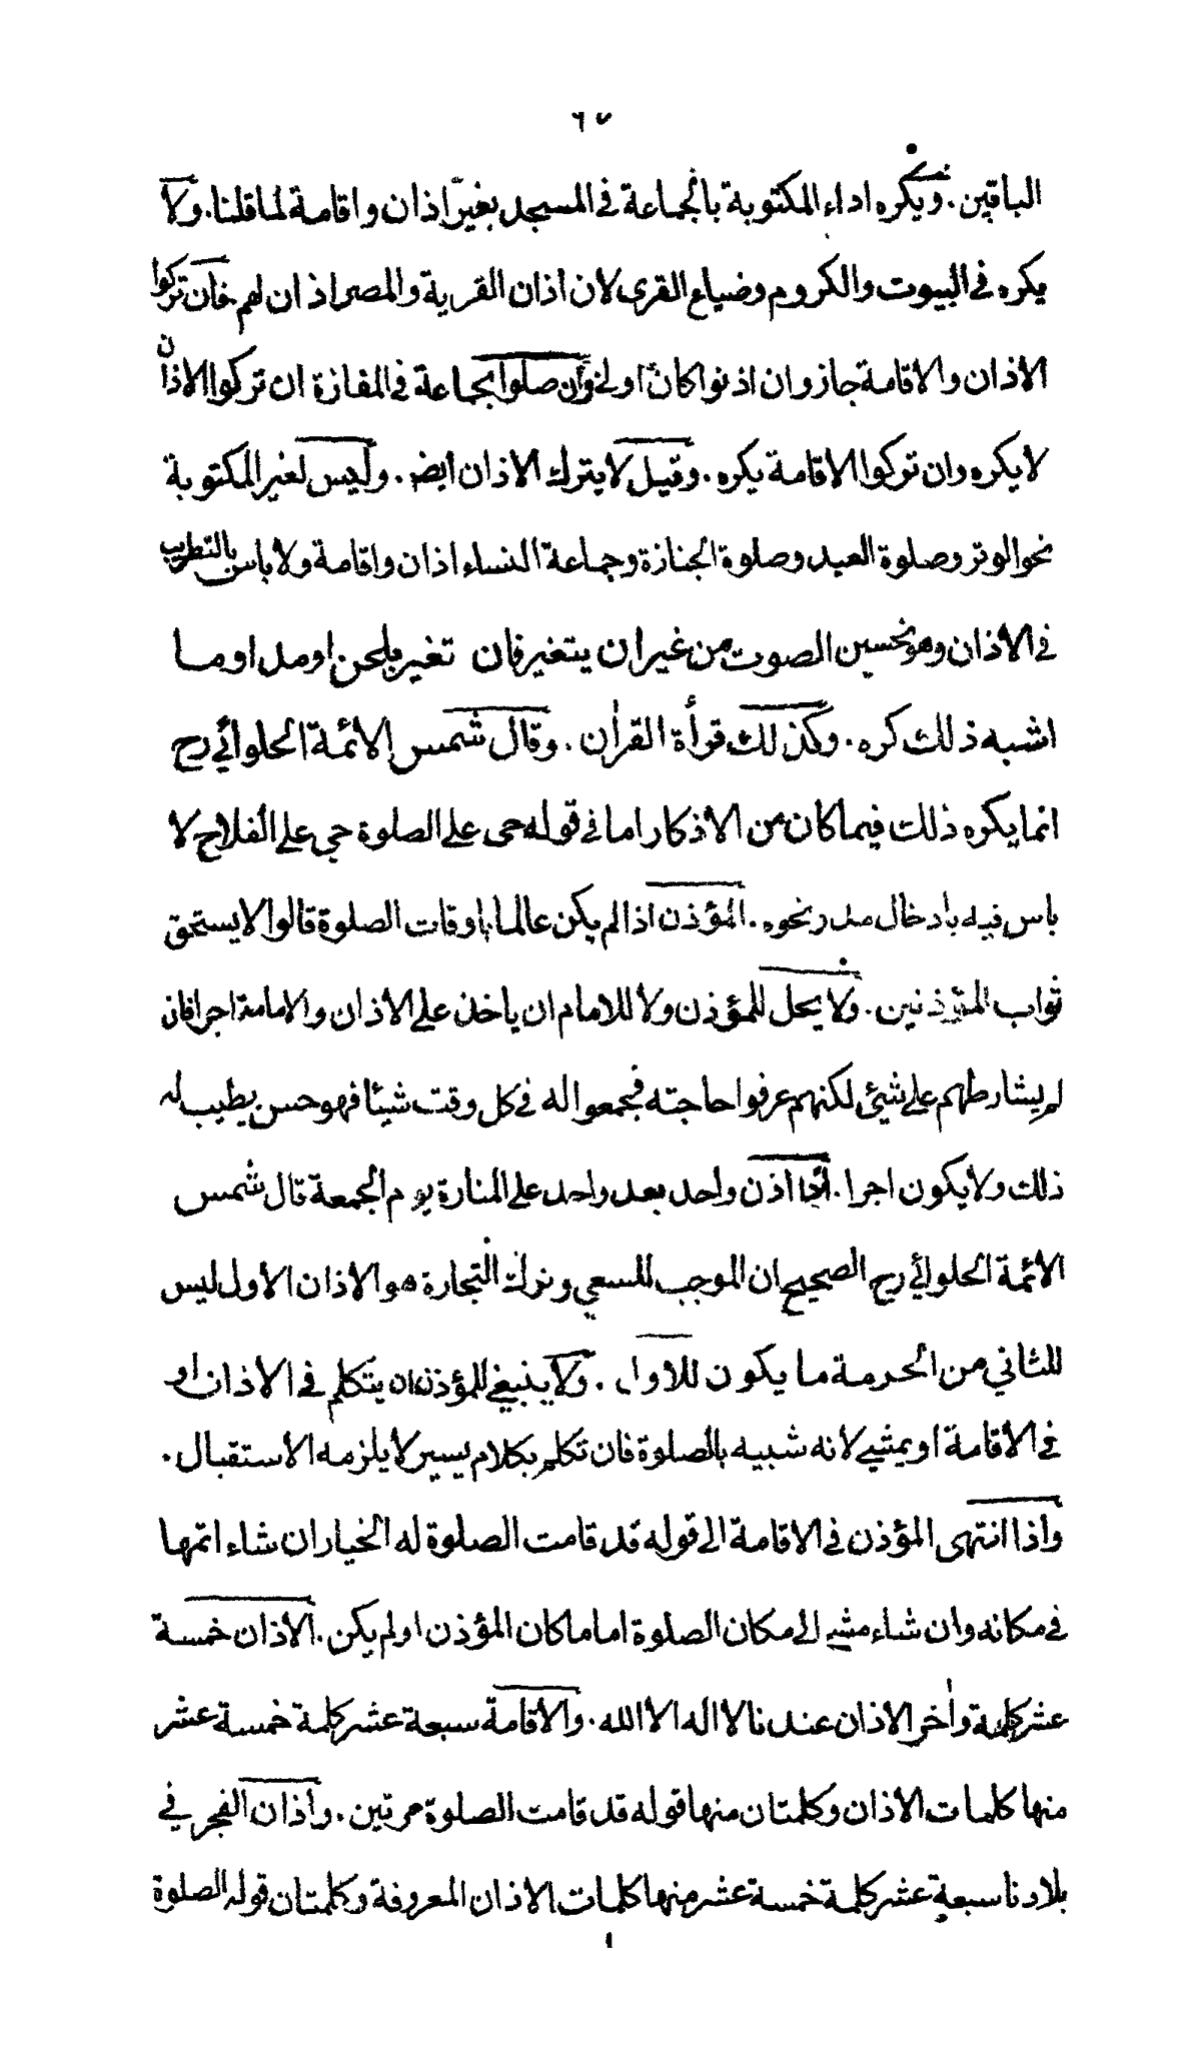 ٦٧
الباقين. ويكره اداء المكتوبة بالجماعة في المسجد بغير اذان واقامة لما قلنا. ولا
يكره في البيوت والكروم وضياع القرى لان اذان القرية والمصر اذان لهم فان تركوا
الاذان والاقامة جاز وان اذنوا كان اولى وان صلوا بجماعة في المفازة ان تركوا الاذان
لا يكره وان تركوا الاقامة يكره. وقيل لا يترك الاذان ايضا. وليس لغير المكتوبة
نحو الوتر وصلوة العيد وصلوة الجنازة وجماعة النساء اذان واقامة ولا باس بالتطريب
في الاذان وهو تحسين الصوت من غير ان يتغير فان تغير بلحن او مد او ما
اشبه ذلك كره. وكذلك قرأة القرأن. وقال شمس الائمة الحلوائي رح
انما يكره ذلك فيما كان من الاذكار اما في قوله حى على الصلوة حى على الفلاح لا
باس فيه بادخال مد ونحوه. المؤذن اذا لم يكن عالما باوقات الصلوة قالوا لا يستحق
ثواب المؤذنين. ولا يحل للمؤذن ولا للامام ان ياخذ على الاذان والامامة اجرا فان
لم يشارطهم على شيئ لكنهم عرفوا حاجته فجمعوا له في كل وقت شيئا فهو حسن يطيب له
ذلك ولا يكون اجرا. اذا اذن واحد بعد واحد على المنارة يوم الجمعة قال شمس
الائمة الحلوائي رح الصحيح ان الموجب للسعي وترك التجارة هو الاذان الاول ليس
للثاني من الحرمة ما يكون للاول. ولا ينبغي للمؤذن ان يتكلم في الاذان او
في الاقامة او يمشي لانه شبيه بالصلوة فان تكلم بكلام يسير لا يلزمه الاستقبال.
واذا انتهى المؤذن في الاقامة الى قوله قد قامت الصلوة له الخيار ان شاء اتمها
في مكانه وان شاء مشى الى مكان الصلوة اماما كان المؤذن او لم يكن. الاذان خمسة
عشر كلمة وأخر الاذان عندنا لا اله الا الله. والاقامة سبعة عشر كلمة خمسة عشر
منها كلمات الاذان وكلمتان منها قوله قد قامت الصلوة مرتين. واذان الفجر في
بلادنا سبعة عشر كلمة خمسة عشر منها كلمات الاذان المعروفة وكلمتان قوله الصلوة
١